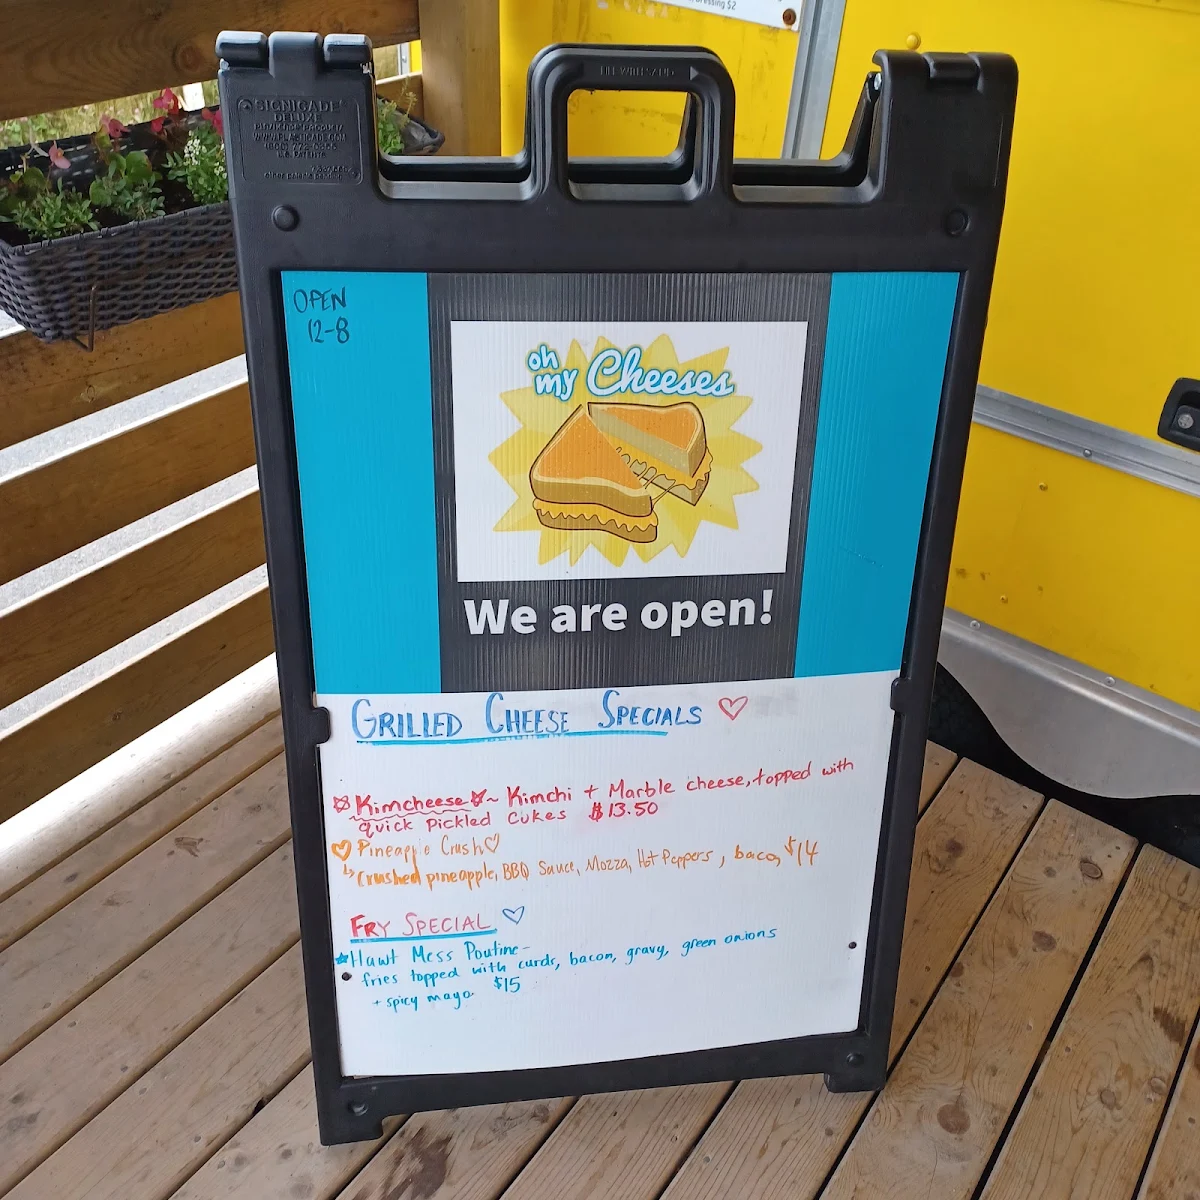 dressing $2
LIFE WITH SAND
SIGNICADE
DELUXE
U.S. PATENTS
OPEN
12-8
oh
my Cheeses
We are open!
GRILLED CHEESE SPECIALS
Kimcheese ~ Kimchi + Marble cheese, topped with
quick pickled cukes $13.50
Pineapple Crush
Crushed pineapple, BBQ Sauce, Mozza, Hot Peppers, bacon $14
FRY SPECIAL
Hawt Mess Poutine -
fries topped with curds, bacon, gravy, green onions
+ spicy mayo $15